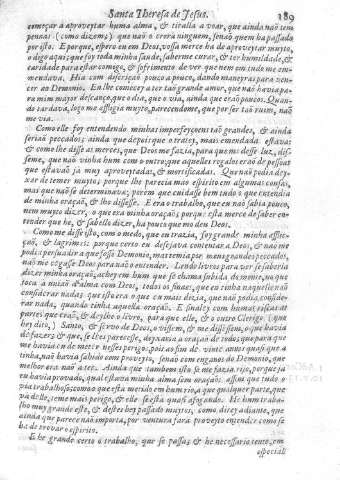 Santa Theresa de Jesus. 189
começar a aproveytar huma alma, & tiralla a voar, que ainda não tem
pennas (como dizem;) que naõ o crerà ninguem, senaõ quem ha passado
por isto. E porque, espero em Deos, vossa merce ha de aproveytar muyto,
o digo aqui; que foy toda minha saude, saberme curar, & ter humildade, &
caridade para estar comigo, & sofrimento de ver que nem em tudo me em-
mendava. Hia com discriçaõ pouco a pouco, dando maneyras para ven-
cer ao Demonio. Eu lhe comecey a ter taõ grande amor, que naõ havia pa-
ra mim mayor descanço, que o dia, que o via, ainda que eraõ poucos. Quan-
do tardava, logo me affligia muyto, parecendome, que por ser taõ ruim, naõ
me via.
Como elle foy entendendo minhas imperfeyçoens taõ grandes, & ainda
seriaõ peccados; ainda que depois que o tratey, mais emendada estava;
& como lhe disse as merces, que Deos me fazia, para que me desse luz, dis-
seme, que naõ vinha hum com o outro; que aquelles regalos eraõ de pessoas
que estavaõ ja muy aproveytadas, & mortificadas. Que naõ podia dey-
xar de temer muyto; porque lhe parecia mao espirito em algumas cousas,
mas que naõ se determinava; porèm que cuidasse bem tudo o que entendia
de minha oraçaõ, & lho dissesse. E era o trabalho, que eu naõ sabia pouco,
nem muyto dizer, o que era minha oraçaõ; porque esta merce de saber en-
tender que he, & sabello dizer, ha pouco que mo deu Deos.
Como me disse isto, com o medo, que eu trazia, foy grande minha afflic-
çaõ, & lagrimas: porque certo eu desejava contentar a Deos, & naõ me
podia persuadir a que fosse Demonio, mas temia por meus grandes peccados,
naõ me cegasse Deos para naõ o entender. Lendo livros para ver se saberia
dizer minha oraçaõ, achey em hum que se chama subida do monte, no que
toca a uniaõ d'alma com Deos, todos os sinaes, que eu tinha naquelle naõ
considerar nada; que isto era o que eu mais dezia, que naõ podia conside-
rar nada, quando tinha aquella oraçaõ. E sinaley com humas riscas as
partes que eraõ, & deylhe o livro, para que elle, & o outro Clerigo (que
hey dito,) Santo, & servo de Deos, o vissem, & me dissessem, o que havia
de fazer; & que, se lhes parecesse, deyxaria a oraçaõ de todo; que para que
me havia eu de meter nesses perigos, pois ao fim de vinte annos quasi que a
tinha, naõ havia sahido com proveyto, senaõ com enganos do Demonio, que
melhor era naõ a ter. Ainda que tambem isto se me fazia rijo, porque ja
eu havia provado, qual estava minha alma sem oraçaõ: assim que tudo o
via trabalhoso; como o que està metido em hum rio, que qualquer parte, que
và delle, teme mais perigo, & elle se està quasi afogando. He hum traba-
lho muy grande este, & destes hey passado muytos, como direy adiante, que
ainda que parece naõ importa, por ventura farà proveyto entender como se
ha de provar o espirito.
E he grande certo o trabalho, que se passa; & he necessario tento, em
especial